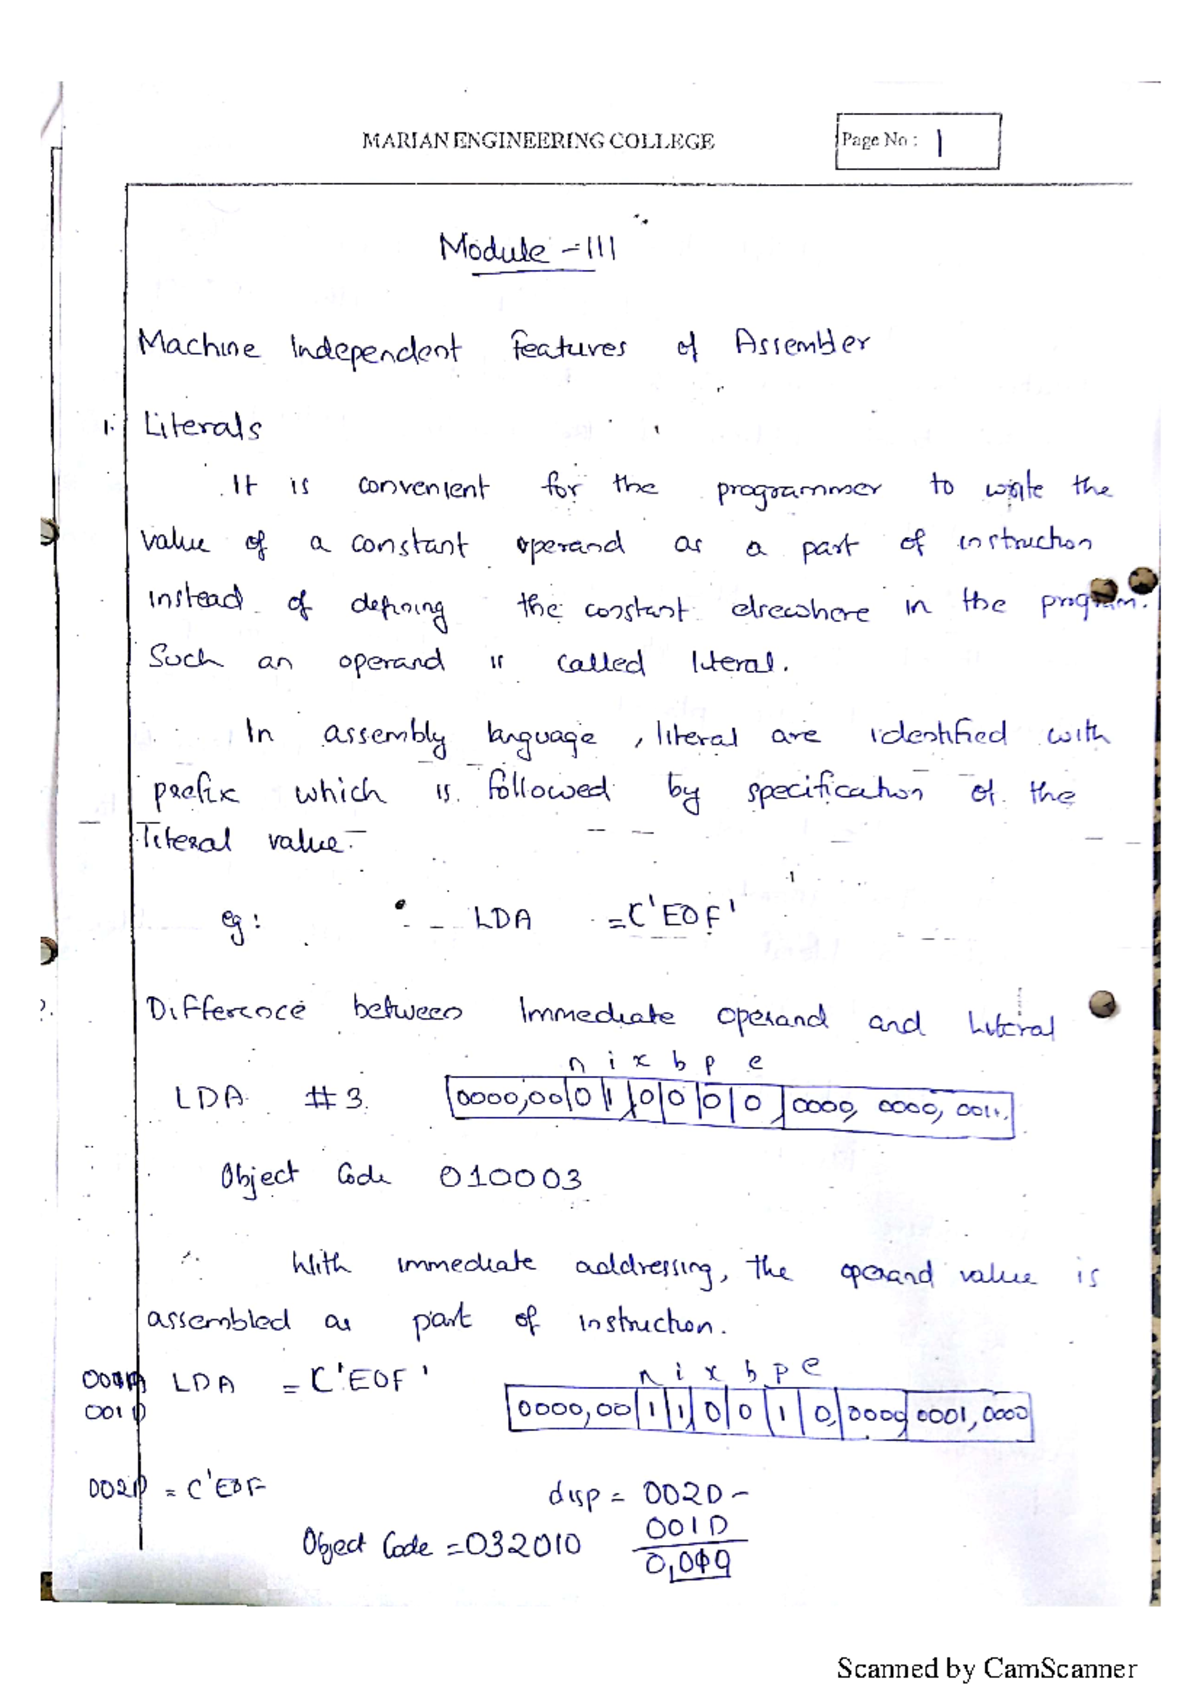 MARIAN ENGINEERING COLLEGE
Page No : 1
Module - III
Machine Independent Features of Assembler
1. Literals
It is convenient for the programmer to write the
value of a constant operand as a part of instruction
instead of defining the constant elsewhere in the program.
Such an operand is called literal.
In assembly language, literal are identified with
prefix which is followed by specification of the
literal value.
eg: LDA =C'EOF'
Difference between Immediate operand and Literal
n i x b p e
LDA #3 0000,00 0 1 0 0 0 0 0000, 0000, 0011
Object Code 010003
With immediate addressing, the operand value is
assembled as part of instruction.
n i x b p e
LDA = C'EOF' 0000,00 1 1 0 0 1 0 0000 0001,0000
001D
002D = C'EOF
disp = 002D -
001D
Object Code = 032010